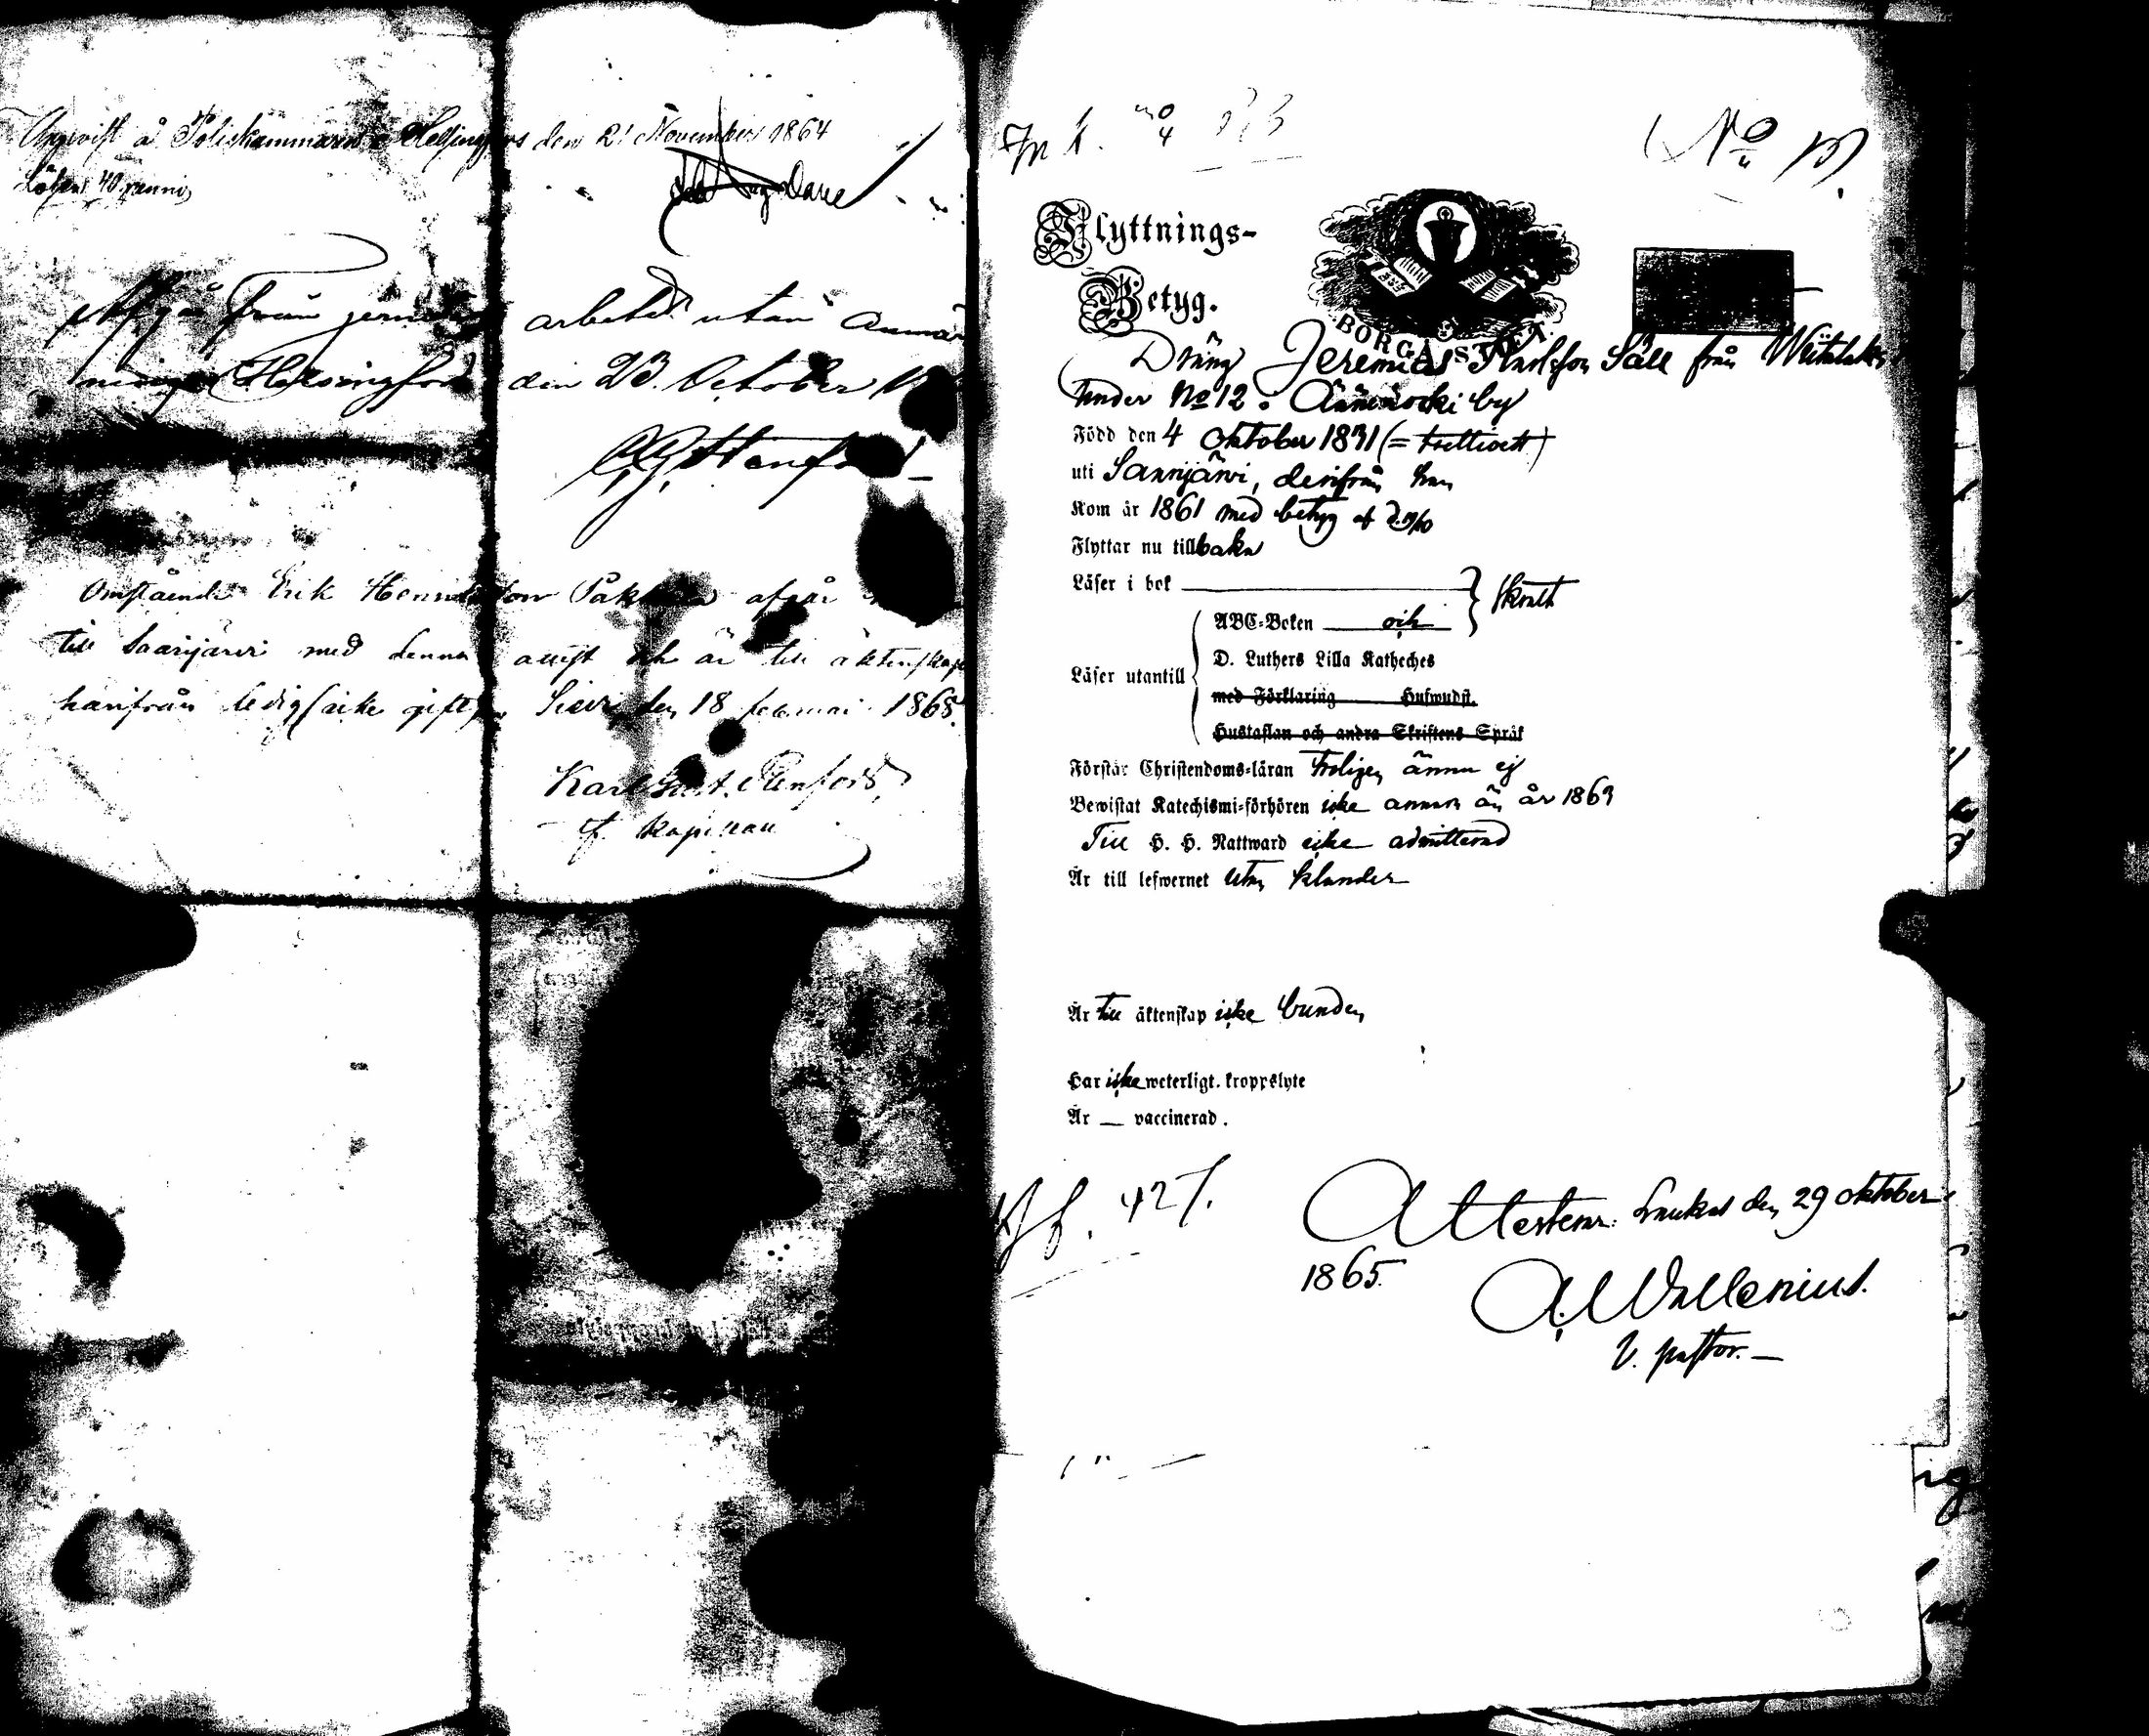 Uppvist å Poliskammaren i Helsingfors den 21 November 1864
Lösen 40 penni
Afgår från jernvägs arbetet utan anmärk
ningar Helsingfors den 23 October
Omstående Erik Henriksson afgår
till Saarijärvi med denna attest och är till äktenskap
härifrån ledig (icke gift) den 18 februari 1868.
Karl Gust.
Kapellan
In k. No 4
No
Flyttnings-
Betyg.
BORGÅ STIFT.
Dräng Jeremias Karlsson Säll från
under No 12 Äänekoski by
Född den 4 oktober 1831
uti Saarijärvi, derifrån han
Kom år 1861 med betyg af d. 19/10
Flyttar nu tillbaka
Läser i bok
ABC-Boken och
D. Luthers Lilla Katheches
Läser utantill
med Förklaring Hufwudst.
Hustaflan och andra Skriftens Språk
Förstår Christendoms-läran Troligen ännu ej
Bewistat Katechismi-förhören icke annat än år 1863
Till H. H. Nattward icke admitterad
Är till lefwernet utan klander
Är till äktenskap icke bunden
Har icke weterligt. kroppslyte
Är — vaccinerad.
427.
Attesterar: Laukas den 29 oktober
1865.
A. Wallenius.
V. pastor. —